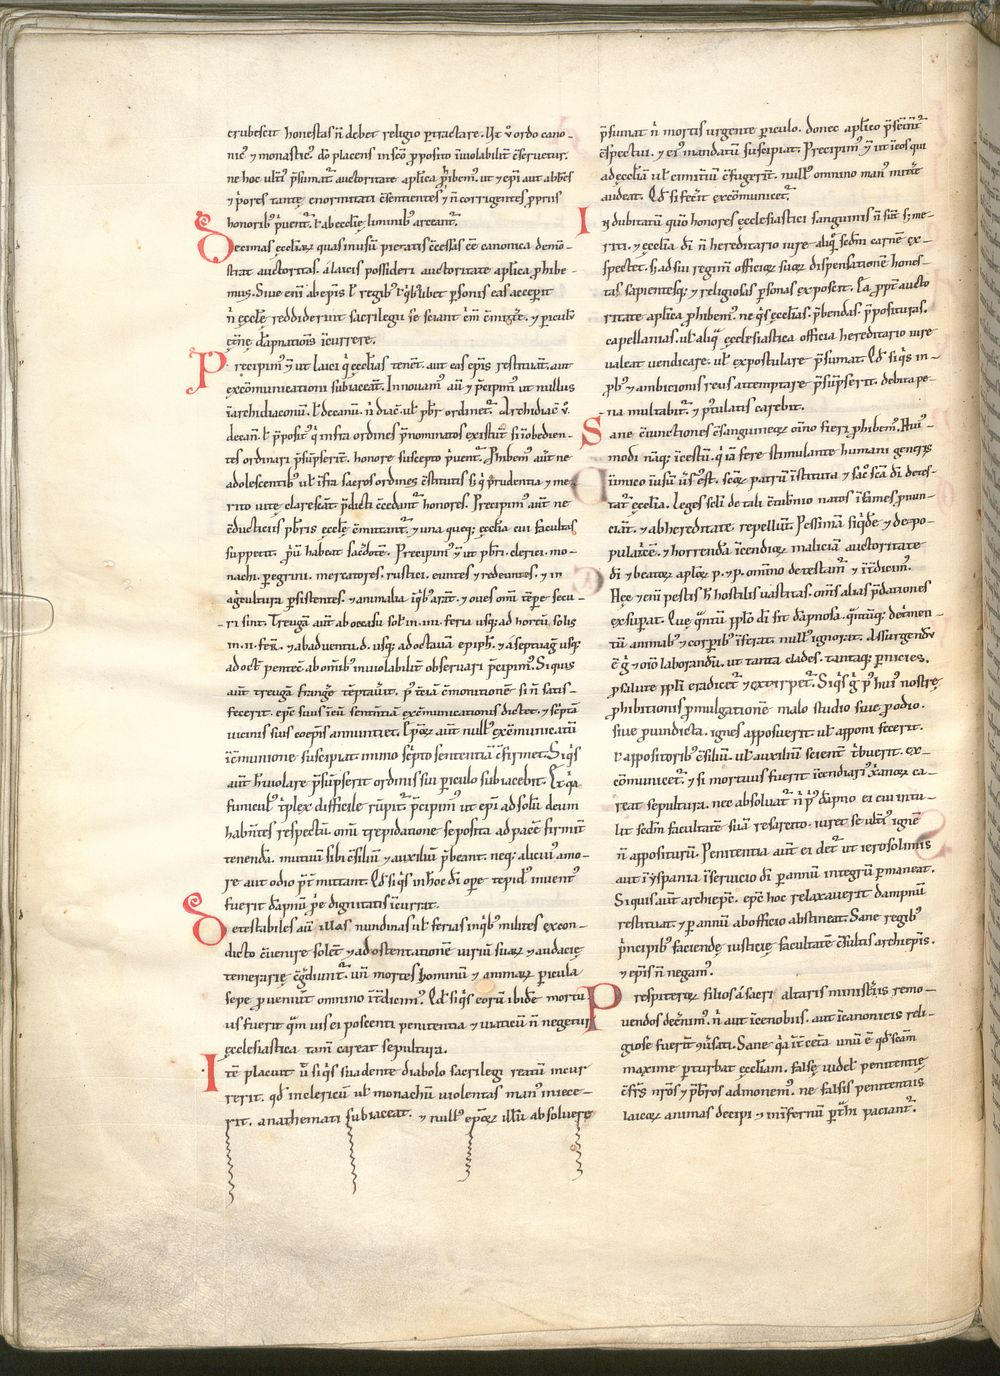 erubescit honestas n̄ debet religio ꝑtractare. Ut ͦv ordo cano-
nic ⁊ monastic᷒ dō placens in scō ꝓposito īuiolabilit̄ c̄seruetur.
ne hoc ult᷒i p̄sumat᷒ auctoritate aplica ꝓhibem᷒. ut ⁊ ep̄i aut abb̄es
⁊ p̄ores tantę enormitati c̄sentientes ⁊ n̄ corrigentes ꝓpriis
honorib᷒ p̄uent᷒. ł ab ecclīe luminib᷒ arceant᷒.
Decimas eccliaꝝ quas in usū pietatis c̄cessas ēē canonica demō-
strat auctoritas. a laicis possideri auctoritate aplica ꝓhibe-
mus. Siue eni ab ep̄is ł regib᷒ ł q̄b᷒libet ꝑsonis eas acceperit
n̄ ecclę reddiderint sacrilegii se sciant c̄m̄ c̄mitt̄e. ⁊ ꝑiculū
ęt̄nę dāpnationis īcurrere.
Precipim᷒ ⁊ ut laici q̄ ecclias tenēt. aut eas ep̄is restituāt. aut
excōmunicationi subiaceāt. Innouam᷒ aū ⁊ p̄cipim᷒ ut nullus
ī archidiaconū. ł decanū. n̄ diac᷒ uł pb̄r ordinet᷒. Archidiac᷒ ͦv.
decan᷒. ł p̄posit᷒ q̄ infra ordines p̄nominatos existūt si īobedien-
tes ordinari p̄sūpserīt. honore suscepto p̄uent᷒. Ꝓhibem᷒ aūt ne
adolescentib᷒ uł īfra sacros ordines c̄stitutis s; q̄ prudentia ⁊ me-
rito uitę clarescāt p̄dicti c̄cedant᷒ honores. Precipim᷒ aut̄ ne
c̄ducticiis pb̄ris ecclę c̄mittant᷒. ⁊ una queq; ecclia cui facultas
suppetit. p̄ū habeat sac̄dotē. Precipim᷒ ⁊ ut pb̄ri. clerici. mo-
nachi. ꝑegrini. mercatores. rustici. euntes ⁊ redeuntes. ⁊ in
ag̓cultura ꝑsistentes. ⁊ animalia iq̄b᷒ arāt. ⁊ oues om̄i tēpe secu-
ri sint. Treugā aūt ab occasu sol᷒ in .iiii. feria usq; ad hortū solis
in .ii. fer̄. ⁊ ab aduentu d. usq; ad octauā epiph. ⁊ a septuag̓ usq;
ad oct̄ pentec̄. ab om̄ib᷒ inuiolabilit̄ obseruari p̄cipim᷒. Si quis
aūt treugā frang̓e tēptau̓it. p᷒ t̓ciā c̄monitionē si n̄ satis-
fecerit. ep̄c suus ī eū sententiā excōmunicationis dictet. ⁊ sc̓ptā
uicinis suis coep̄is annunciet. Ep̄oꝝ aūt null᷒ excōmunicatū
ī c̄munione suscipiat. immo sc̓pto sententiā c̄firmet. Si q̄s
aūt h̄ uiolare p̄sūpserit ordinis sui ꝑiculo subiacebit. Et q̄a
funicul᷒ t̓plex difficile rūpit᷒. p̄cipim᷒ ut ep̄i ad solū deum
hab̄ntes respectū. om̄i trepidatione seposita. ad pacē firmit̓
tenendā. mutuū sibi c̄siliū ⁊ auxiliū p̄beant. neq; alicui᷒ amo-
re aut odio p̄t̓mittant. Qd̄ si q̄s in hoc di opere tepid᷒ inuent᷒
fuerit dāpnū ꝓp̓e dignitatis īcurrat.
Detestabiles aū illas nundinas uł ferias in q̄b᷒ milites ex con-
dicto c̄uenire solēt ⁊ ad ostentationē uiriū suaꝝ ⁊ audacię
temerarię c̄g̓diunt᷒. uñ mortes hominū ⁊ animaꝝ ꝑicula
sepe ꝓueniūt omnino īt̓dicim᷒. Qd̄ si q̄s eorū ibidē mortu-
us fuerit quāuis ei poscenti penitentia ⁊ uiaticū n̄ negetur
ęcclesiastica tam̄ careat sepultura.
Itē placuit ū si q̄s suadente diabolo sacrilegi reatū incur-
rerit. qd̄ in clericū uł monachū uiolentas man᷒ iniece-
rit. anathemati subiaceat. ⁊ null᷒ ep̄oꝝ illū absoluere
p̄sumat n̄ mortis urgente ꝑiculo. donec aplico p̄sentet᷒
c̄spectui. ⁊ ei᷒ mandatū suscipiat. Precipim᷒ ⁊ ut ī eos qui
ad eccliā uł cimitiū c̄fugerīt. null᷒ omnino man᷒ mitt̓e
audeat. Qd̄ si fec̓it excōmunicet᷒.
Indubitatū quō honores ecclesiastici sanguinis n̄ sūt s; me-
riti. ⁊ ecclia di n̄ hereditario iure aliq̄ sedm carnē ex-
spectet. s; ad sui regim̄ officiaꝗ suaꝝ dispensationē hones-
tas sapientesq; ⁊ religiosas ꝑsonas exposcit. Ea ꝓpt᷒ aucto-
ritate aplica ꝓhibem᷒. ne q̄s ecclias. p̄bendas. p̄posituras.
capellanias. uł aliq̄ ecclesiastica officia hereditario iure
ualeat uendicare. uł expostulare p̄sumat. Qd̄ si q̄s in-
ꝓb᷒ ⁊ ambicionis reus attemptare p̄sūpserit. debita pe-
na multabit᷒. ⁊ p᷒tulatis carebit.
Sane c̄iunctiones c̄sanguineoꝝ oīno fieri ꝓhibem᷒. Hui᷒-
modi nāq; īcestū. q̄ iā fere stimulante humani gen̓is
īimico ī usū ūs᷒ est. scōꝝ patrū īstituta ⁊ sac̓scā di detes-
tat᷒ ecclia. Leges scli de tali c̄tub̓nio natos īfames ꝓnun-
ciāt. ⁊ ab hereditate repellūt. Pessimā siq̄de ⁊ depo-
pulat̓cē. ⁊ horrendā īcendioꝝ maliciā auctoritate
di ⁊ beatoꝝ aploꝝ p. ⁊ p. om̄ino detestam᷒ ⁊ īt̓dicim᷒.
Hęc ⁊ enī pestis h̄ hostilis uastitas. om̄s alias p̄dationes
exsuꝑat. Quę q̄ntū pplō di sit dāpnosa. q̄ntūq; det̓men-
tū animab᷒ ⁊ corꝑib᷒ īferat. null᷒ ignorat. Assurgendū
ē g̓ ⁊ om̄o laborandū. ut tanta clades. tantaq; ꝑnicies.
ꝓ salute ppli eradicet᷒ ⁊ extirpet᷒. Si q̄s g̓ p᷒ hui᷒ nostrę
ꝓhibitionis ꝓmulgationē malo studio siue ꝓ odio.
siue ꝓ uindicta. ignes apposuerit uł apponi fecerit.
ł appositorib᷒ c̄siliū. uł auxiliū scient̓ t̓buerit. ex-
cōmunicet᷒. ⁊ si mortuus fuerit īcendiari᷒ x̄anoꝝ ca-
reat sepultura. nec absoluat᷒ n̄ p᷒ dāpno ei cui intu-
lit sedm facultatē suā resarcito. iuret se ult᷒i᷒ ignē
n̄ appositurū. Penitentia aūt ei det᷒ ut ierosolimis
aut ī yspania ī seruicio di ꝑ annū integrū ꝑmaneat.
Siquis aut archiep̄c. ep̄c hoc relaxauerit dampnū
restituat. ⁊ ꝑ annū ab officio abstineat. Sane regib᷒
p̄ncipib᷒ faciendę iusticię facultatē c̄sultis archiep̄is.
⁊ ep̄is n̄ negam᷒.
Prespiteroꝝ filios a sacri altaris ministr̄iis remo-
uendos dec̓nim᷒. n̄ aut ī cenobiis. aut ī canonicis reli-
giose fuerīt ūsati. Sane q̄a īt̓ cet̓a unū ē qd̄ scam
maxime ꝑturbat eccliam. falsę uidel᷒ penitentię
c̄fr̄s nr̄os ⁊ pb̄ros admonem᷒. ne falsis penitentiis
laicoꝝ animas decipi ⁊ in īfernū ꝑt̓hi paciant᷒.